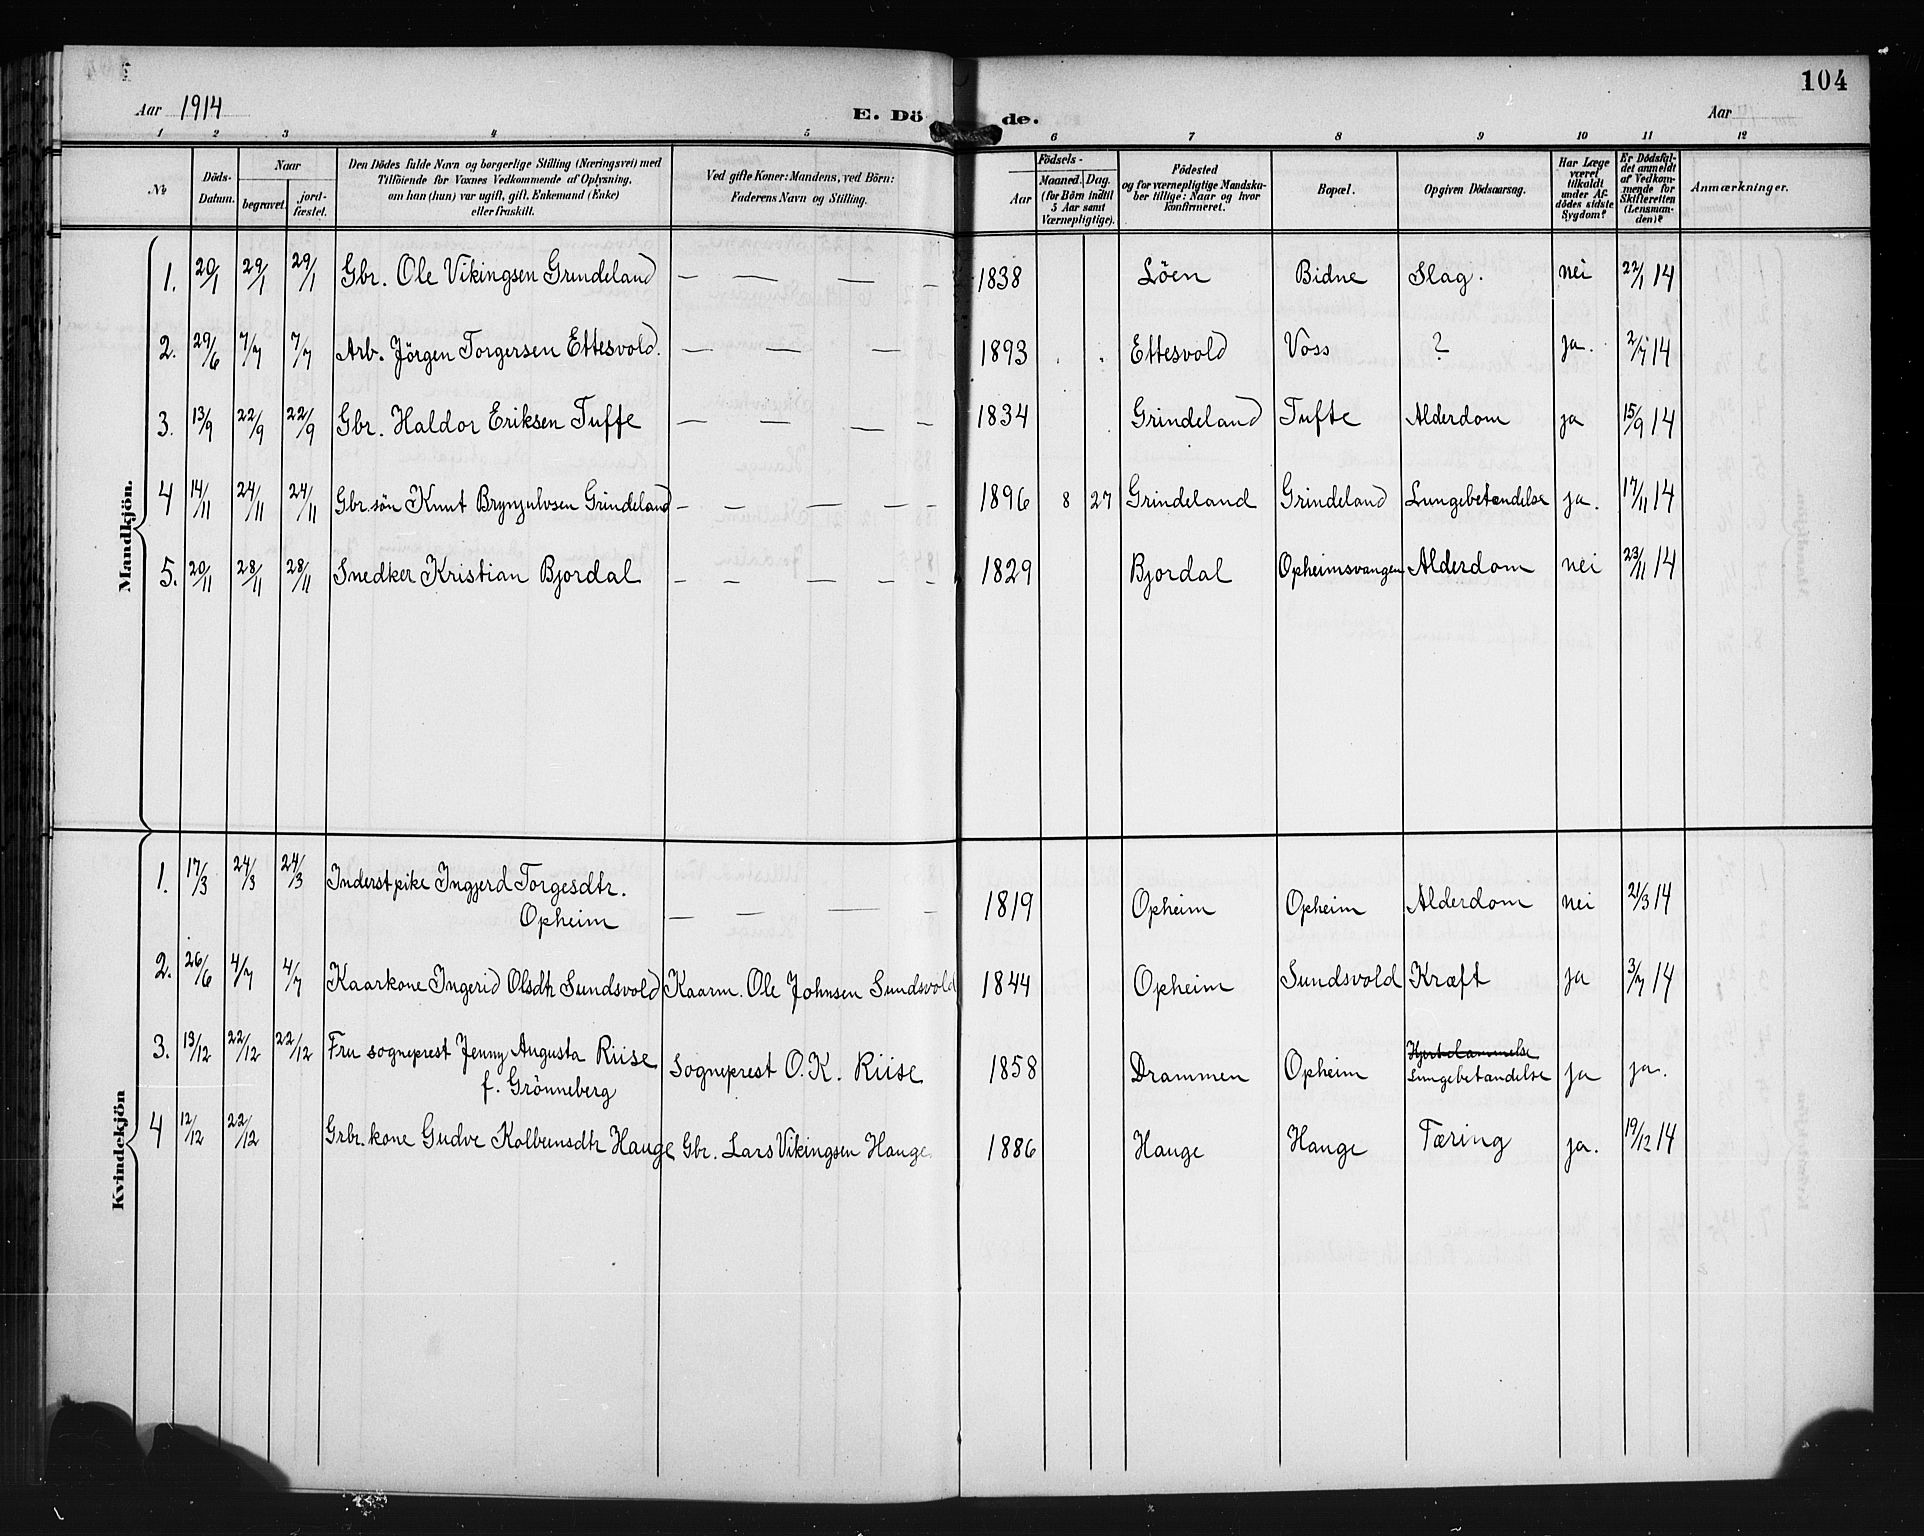 104
Aar 1914
E. Dö de.
Aar
1 2 3 4 5 6 7 8 9 10 11 12
No
Döds-Datum.
Naar
begravet.
jord-fæstet.
Den Dödes fulde Navn og borgerlige Stilling (Næringsvei) med
Tilföiende for Voxnes Vedkommende af Oplysning,
om han (hun) var ugift, gift, Enkemand (Enke)
eller fraskilt.
Ved gifte Koner: Mandens, ved Börn:
Faderens Navn og Stilling.
Födsels-
Aar
Maaned. Dag.
(for Börn indtil
5 Aar samt
Værnepligtige).
Födested
og for værnepligtige Mandska-
ber tillige: Naar og hvor
konfirmeret.
Bopæl.
Opgiven Dödsaarsag.
Har Læge
været
tilkaldt
under Af-
dödes sidste
Sygdom?
Er Dödsfal-
det anmeldt
af Vedkom-
mende for
Skifteretten
(Lensman-
den)?
Anmærkninger.
Mandkjön.
1. 20/1 29/1 29/1 Gbr. Ole Vikingsen Grindeland — — — – 1838 Löen Bidne Slag. nei 22/1 14
2. 29/6 7/7 7/7 Arb. Jörgen Torgersen Ettesvold. — — — – 1893 Ettesvold Voss ? ja. 2/7 14
3. 13/9 22/9 22/9 Gbr. Haldor Eriksen Tufte — — — – 1834 Grindeland Tufte Alderdom ja 15/9 14
4 14/11 24/11 24/11 Gbr. sön Knut Brynjulvsen Grindeland – – – – – 1896 8 27 Grindeland Grindeland Lungebetændelse ja. 17/11 14
5. 20/11 28/11 28/11 Snedker Kristian Bjordal – – – – – 1829 Bjordal Opheimsvangen Alderdom nei 23/11 14
Kvindekjön
1. 17/3 24/3 24/3 Inderst pike Ingjerd Torgesdtr.
Opheim — — — – 1819 Opheim Opheim Alderdom nei 21/3 14
2. 26/6 4/7 4/7 Kaarkone Ingerid Olsdtr Sundsvold Kaarm. Ole Johnsen Sundsvold 1844 Opheim Sundsvold Kræft ja 3/7 14
3. 13/12 22/12 22/12 Fru sogneprest Jenny Augusta Riise
f. Grönneberg Sogneprest O. K. Riise 1858 Drammen Opheim Hjertelammelse
Lungebetændelse ja ja.
4 12/12 22/12 Grbr. kone Gudve Kolbeinsdtr Hauge Gbr. Lars Vikingsen Hauge 1886 Hauge Hauge Tæring ja. 19/12 14